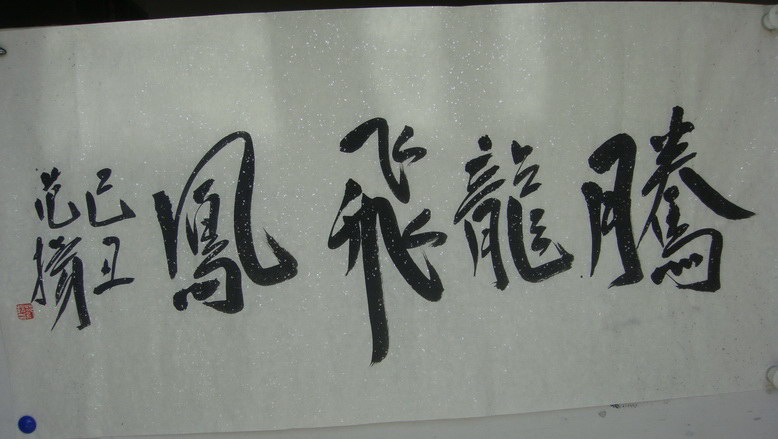 騰龍飛鳳
己丑
范